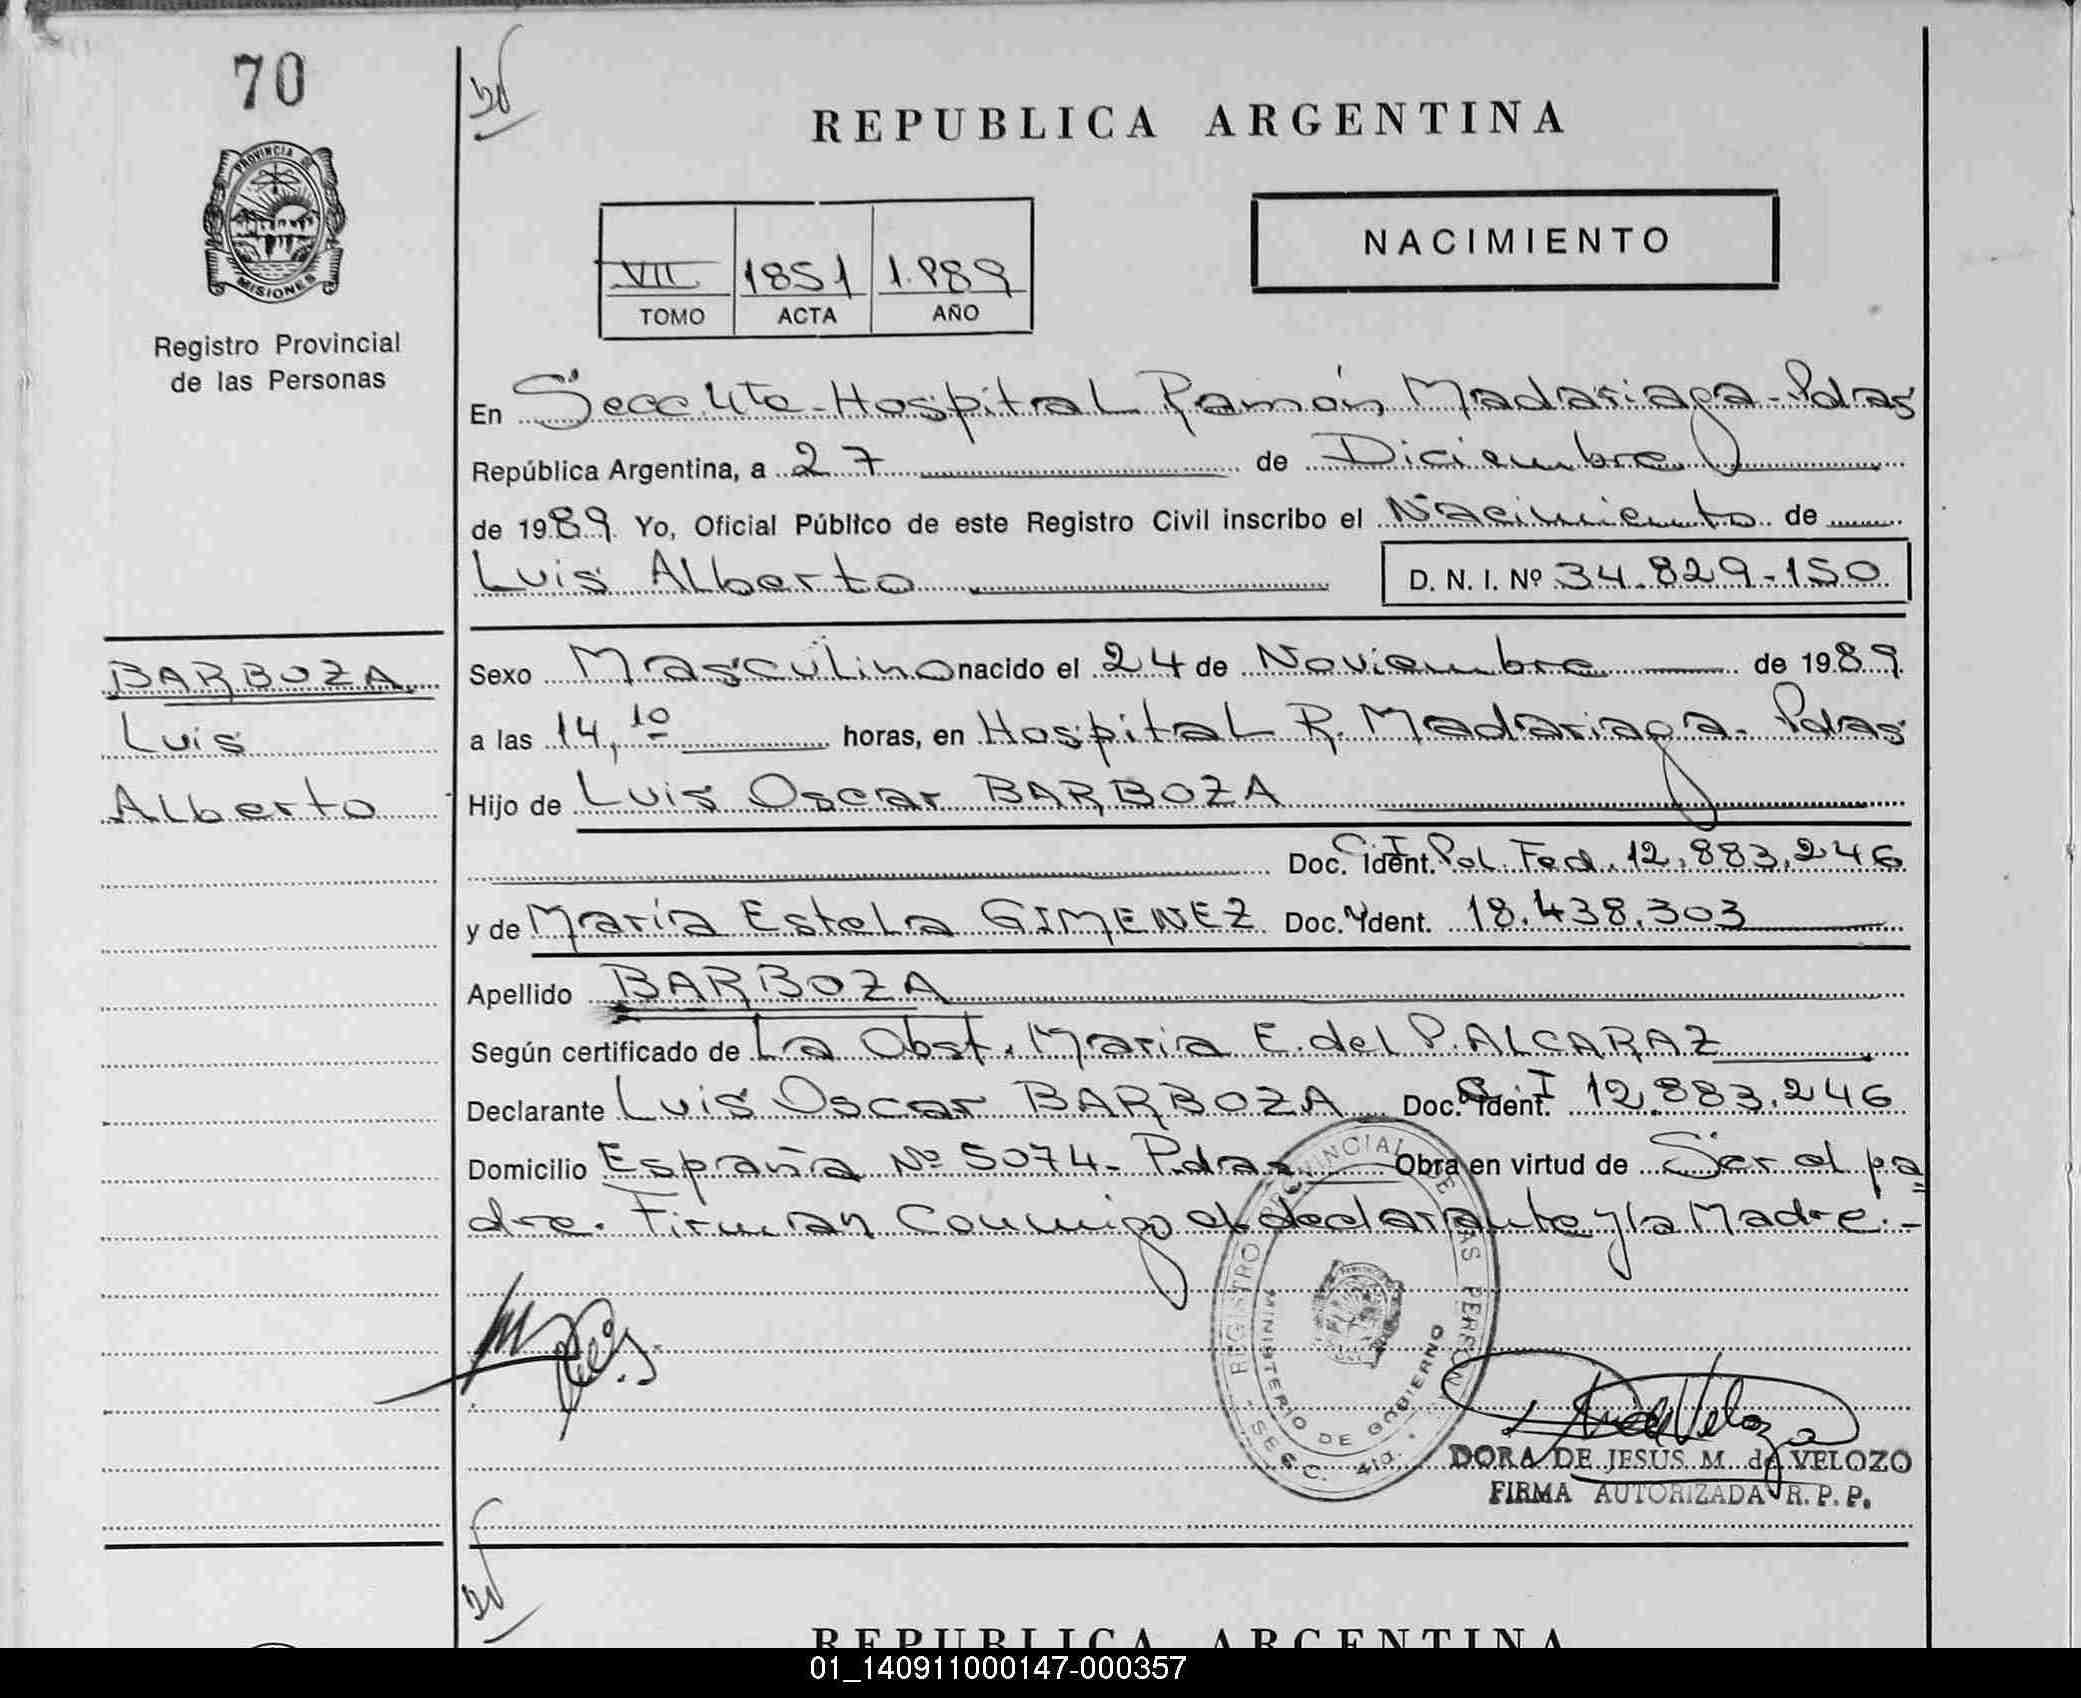 70
REPUBLICA ARGENTINA
PROVINCIA DE
MISIONES
Registro Provincial
de las Personas
VII 1851 1.989
TOMO ACTA AÑO
NACIMIENTO
En Secc. 4ta - Hospital Ramón Madariaga - Pdas
República Argentina, a 27 de Diciembre
de 1989. Yo, Oficial Público de este Registro Civil inscribo el Nacimiento de
Luis Alberto D. N. I. Nº 34.829-150
BARBOZA
Luis
Alberto
Sexo Masculino nacido el 24 de Noviembre de 1989.
a las 14,10 horas, en Hospital R. Madariaga - Pdas
Hijo de Luis Oscar BARBOZA
Doc. Ident. C. I. Pol. Fed. 12.883.246
y de María Estela GIMENEZ Doc. Ident. 18.438.303
Apellido BARBOZA
Según certificado de La Obst. Maria E. del P. ALCARAZ
Declarante Luis Oscar BARBOZA Doc. Ident. C. I 12.883.246
Domicilio España Nº 5074 - Pdas Obra en virtud de Ser el pa
dre. Firman Conmigo el declarante y la Madre.-
REGISTRO PROVINCIAL DE LAS PERSONAS
MINISTERIO DE GOBIERNO
- SECC. 4ta. -
DORA DE JESUS M. de VELOZO
FIRMA AUTORIZADA R. P. P.
REPUBLICA ARGENTINA
01_140911000147-000357